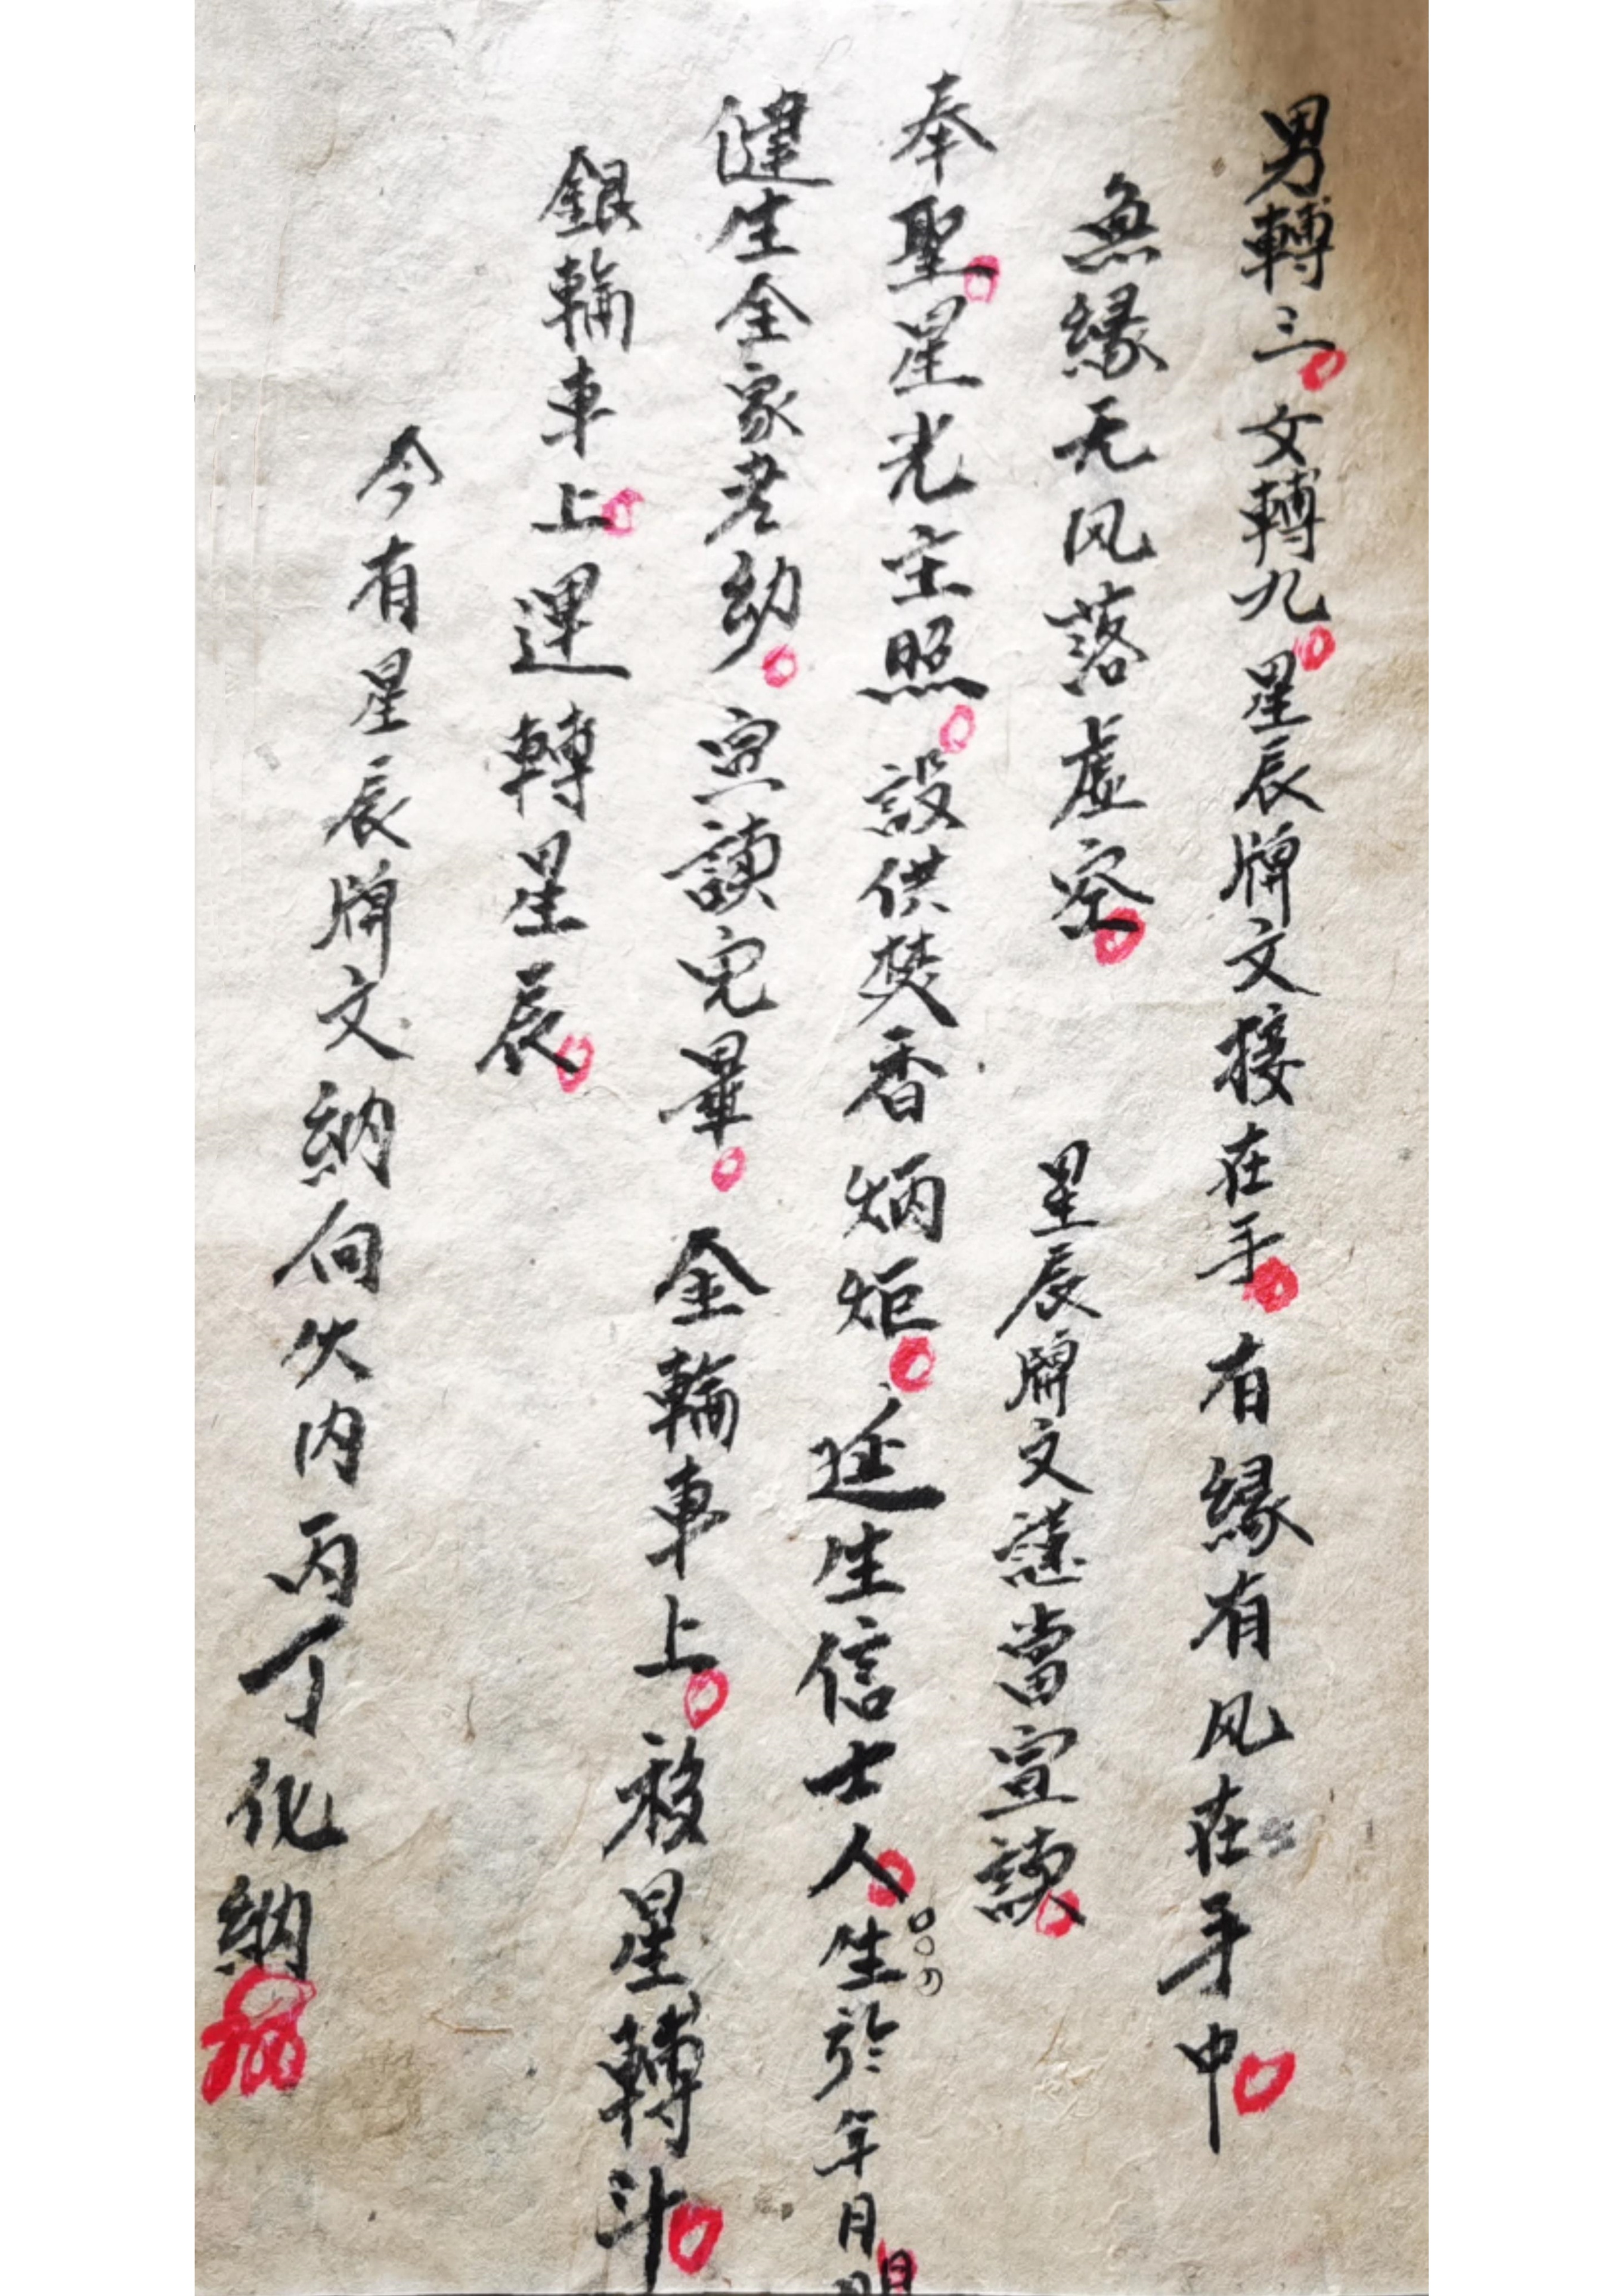 男轉三。女轉九。星辰牌文接在手。有縁有风在手中。
無縁无风落虚空。 星辰牌文謹當宣讀。
奉聖。星光主照。設供焚香炳炬。延生信士人。生於年月日
健生全家老幼。宣讀完畢。全輪車上。移星轉斗。
銀輪車上。運轉星辰。
今有星辰牌文納向火内丙丁化納